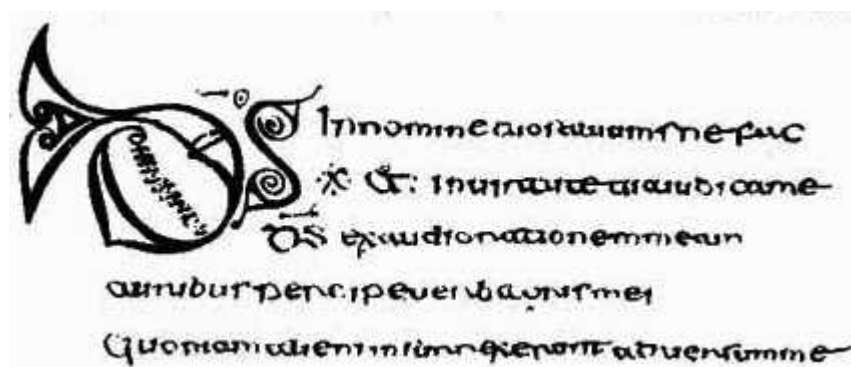 DS In nomine tuo saluum me fac
Et: In uirtute tua iudica me
DS exaudi orationem meam
auribus percipe uerba oris mei
Quoniam alieni insurrexerunt aduersum me